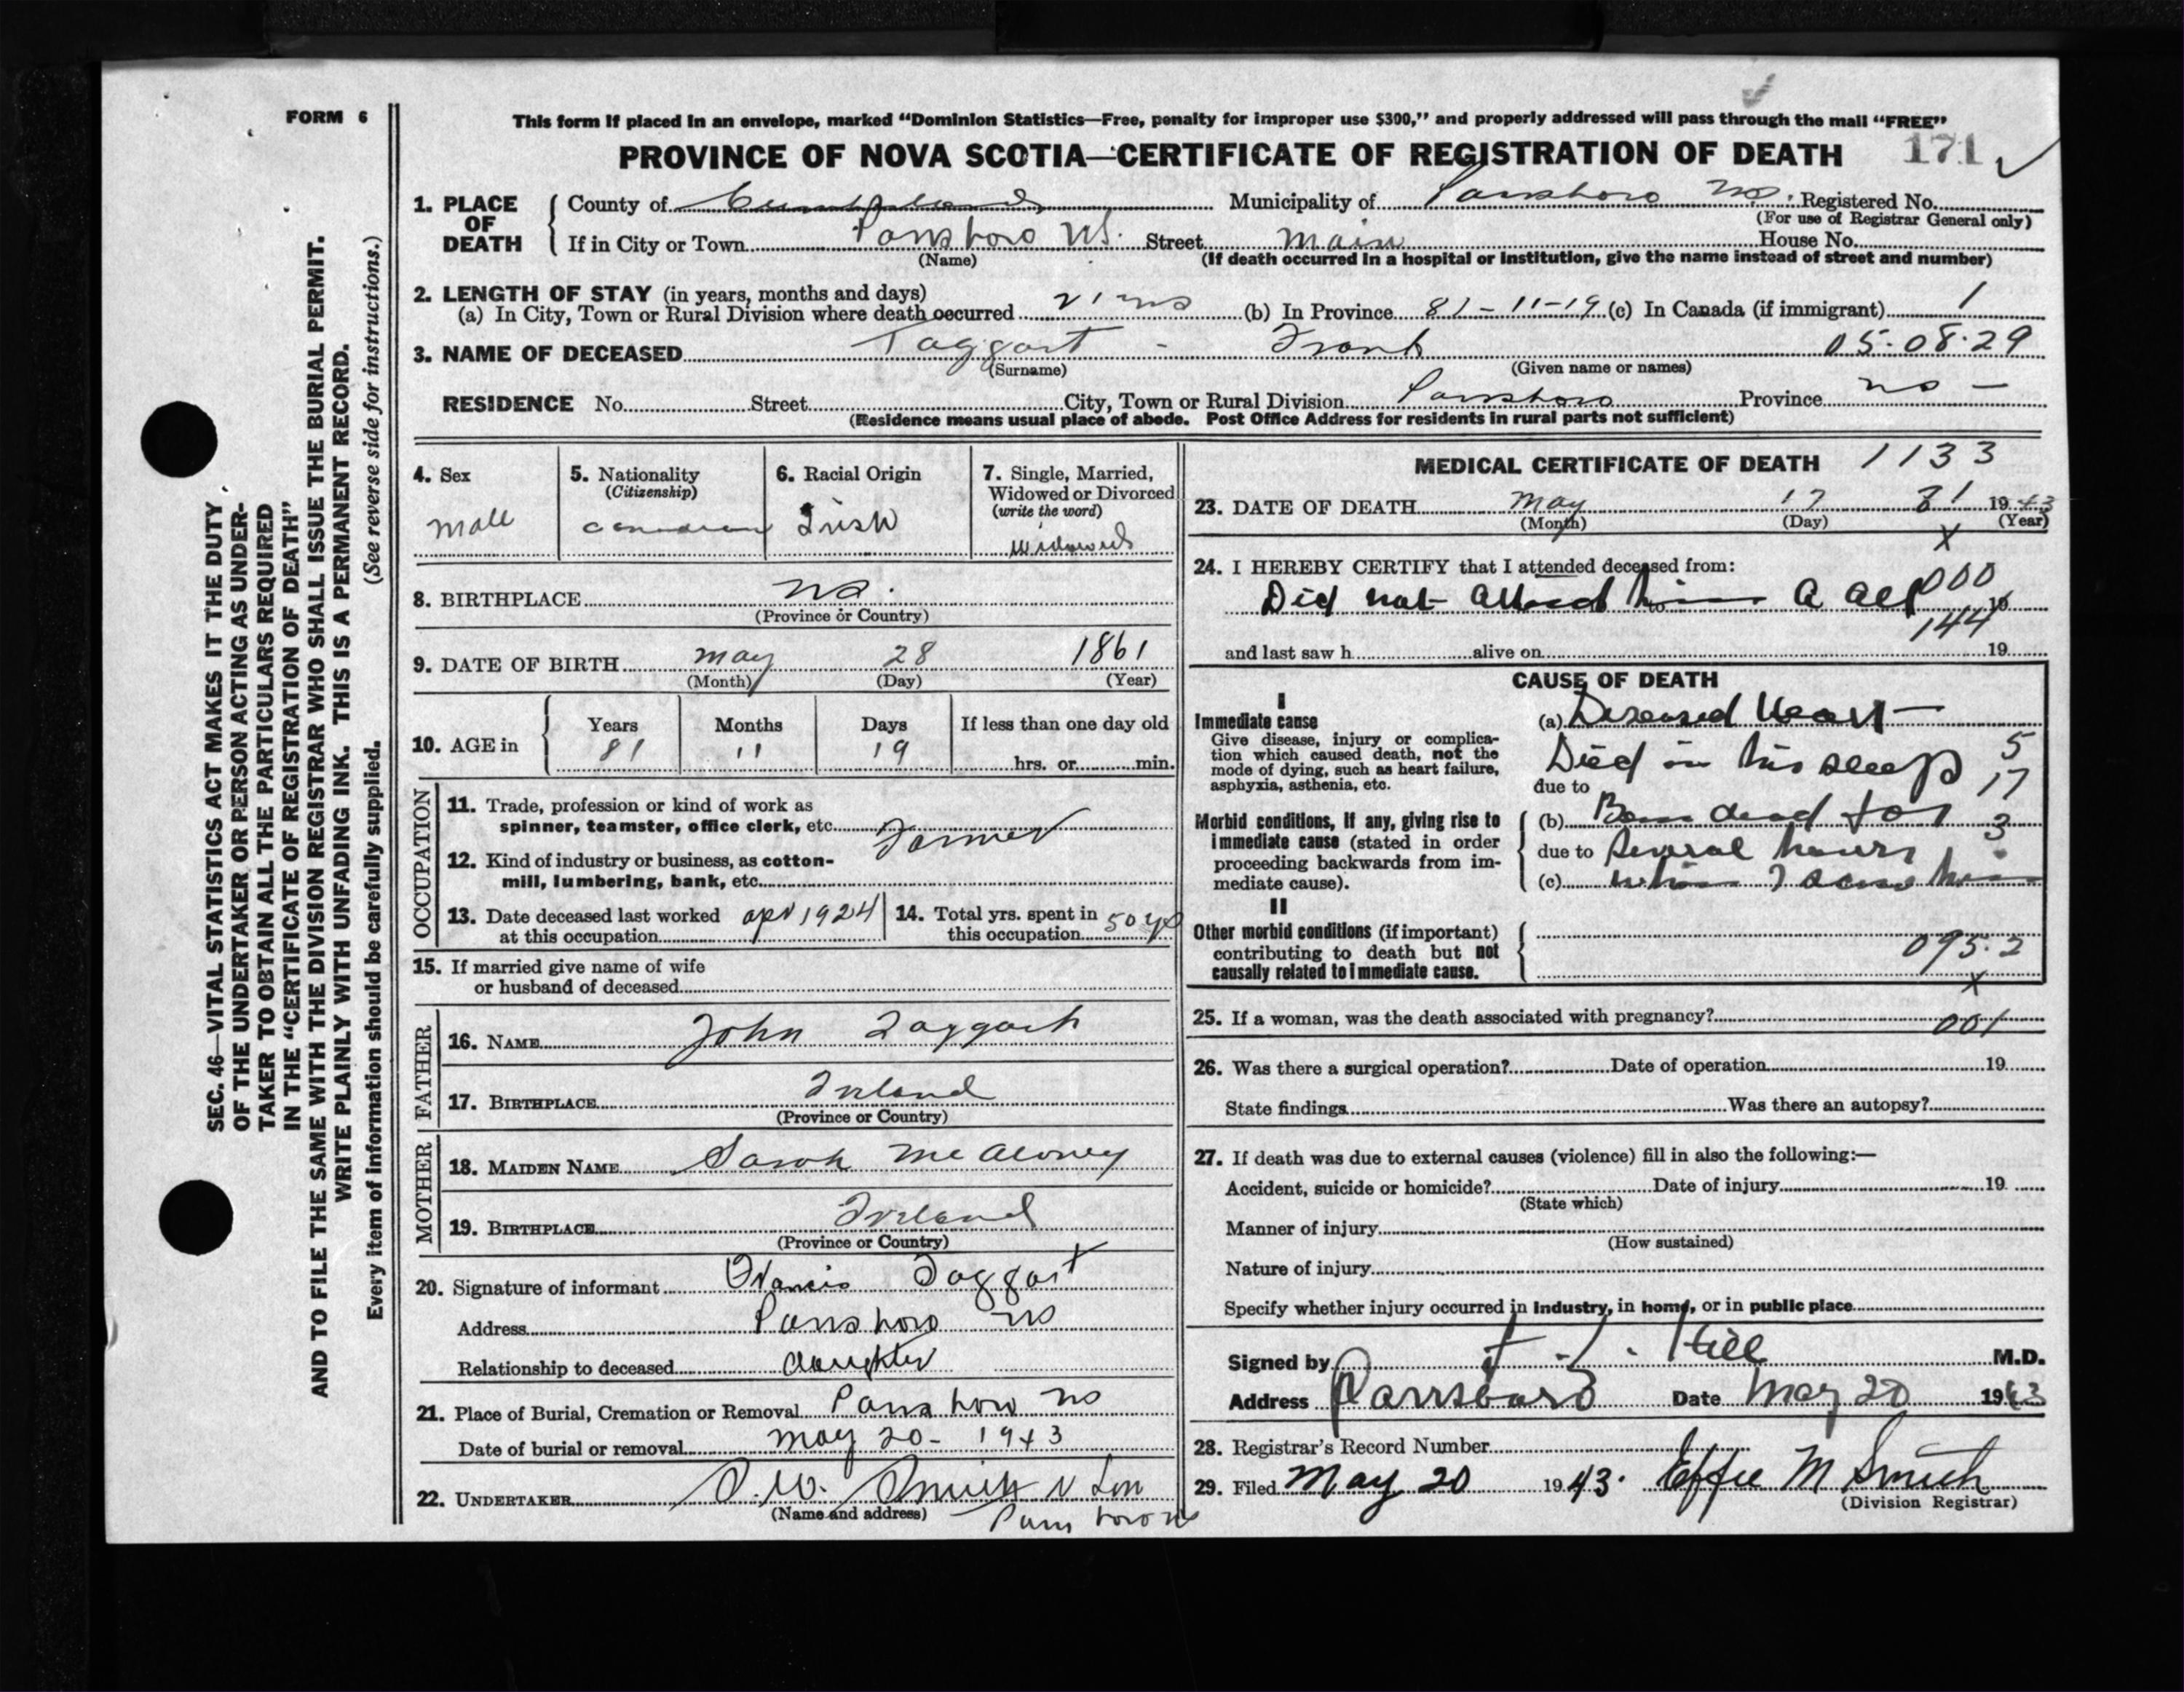 FORM 6
This form if placed in an envelope, marked “Dominion Statistics—Free, penalty for improper use $300,” and properly addressed will pass through the mail “FREE”
PROVINCE OF NOVA SCOTIA—CERTIFICATE OF REGISTRATION OF DEATH 171
1. PLACE OF DEATH
County of Cumberland Municipality of Parrsboro NS. Registered No.
(For use of Registrar General only)
If in City or Town Parrsboro NS. Street Main House No.
(Name) (If death occurred in a hospital or institution, give the name instead of street and number)
2. LENGTH OF STAY (in years, months and days)
(a) In City, Town or Rural Division where death occurred (b) In Province 81-11-19 (c) In Canada (if immigrant) 1
3. NAME OF DECEASED Taggart - Frank 05·08·29
(Surname) (Given name or names)
RESIDENCE No. Street City, Town or Rural Division Parrsboro Province NS —
(Residence means usual place of abode. Post Office Address for residents in rural parts not sufficient)
4. Sex
Male
5. Nationality
(Citizenship)
Canadian
6. Racial Origin
Irish
7. Single, Married, Widowed or Divorced
(write the word)
Widowed
8. BIRTHPLACE NS.
(Province or Country)
9. DATE OF BIRTH May 28 1861
(Month) (Day) (Year)
10. AGE in
Years Months Days If less than one day old
81 11 19 hrs. or min.
OCCUPATION
11. Trade, profession or kind of work as
spinner, teamster, office clerk, etc. Farmer
12. Kind of industry or business, as cotton-
mill, lumbering, bank, etc.
13. Date deceased last worked at this occupation Apr 1924
14. Total yrs. spent in this occupation 50 yrs
15. If married give name of wife
or husband of deceased
FATHER
16. NAME John Taggart
17. BIRTHPLACE Ireland
(Province or Country)
MOTHER
18. MAIDEN NAME Sarah McAloney
19. BIRTHPLACE Ireland
(Province or Country)
20. Signature of informant Francis Taggart
Address Parrsboro NS
Relationship to deceased daughter
21. Place of Burial, Cremation or Removal Parrsboro NS
Date of burial or removal May 20 - 1943
22. UNDERTAKER Smith & Son
(Name and address) Parrsboro NS
MEDICAL CERTIFICATE OF DEATH 1133
23. DATE OF DEATH May 17 81 1943
(Month) (Day) (Year)
X
24. I HEREBY CERTIFY that I attended deceased from:
Did not attend him to A all 000 19
144
and last saw h alive on 19
CAUSE OF DEATH
I
Immediate cause
Give disease, injury or complica-
tion which caused death, not the
mode of dying, such as heart failure,
asphyxia, asthenia, etc.
(a) Diseased Heart —
Died in his sleep 5
due to 17
Morbid conditions, if any, giving rise to
immediate cause (stated in order
proceeding backwards from im-
mediate cause).
(b) Been dead for 3
due to Several hours
(c) when I saw him
II
Other morbid conditions (if important)
contributing to death but not
causally related to immediate cause.
095·2
X
25. If a woman, was the death associated with pregnancy? 001
26. Was there a surgical operation? Date of operation 19
State findings Was there an autopsy?
27. If death was due to external causes (violence) fill in also the following:—
Accident, suicide or homicide? Date of injury 19
(State which)
Manner of injury
(How sustained)
Nature of injury
Specify whether injury occurred in industry, in home, or in public place
Signed by Hill M.D.
Address Parrsboro Date May 20 1943
28. Registrar's Record Number
29. Filed May 20 1943. Effie M Smith
(Division Registrar)
SEC. 46—VITAL STATISTICS ACT MAKES IT THE DUTY
OF THE UNDERTAKER OR PERSON ACTING AS UNDER-
TAKER TO OBTAIN ALL THE PARTICULARS REQUIRED
IN THE “CERTIFICATE OF REGISTRATION OF DEATH”
AND TO FILE THE SAME WITH THE DIVISION REGISTRAR WHO SHALL ISSUE THE BURIAL PERMIT.
WRITE PLAINLY WITH UNFADING INK. THIS IS A PERMANENT RECORD.
Every item of information should be carefully supplied. (See reverse side for instructions.)